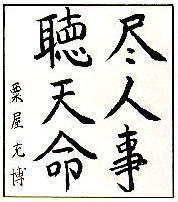 尽人事
聴天命
粟屋充博